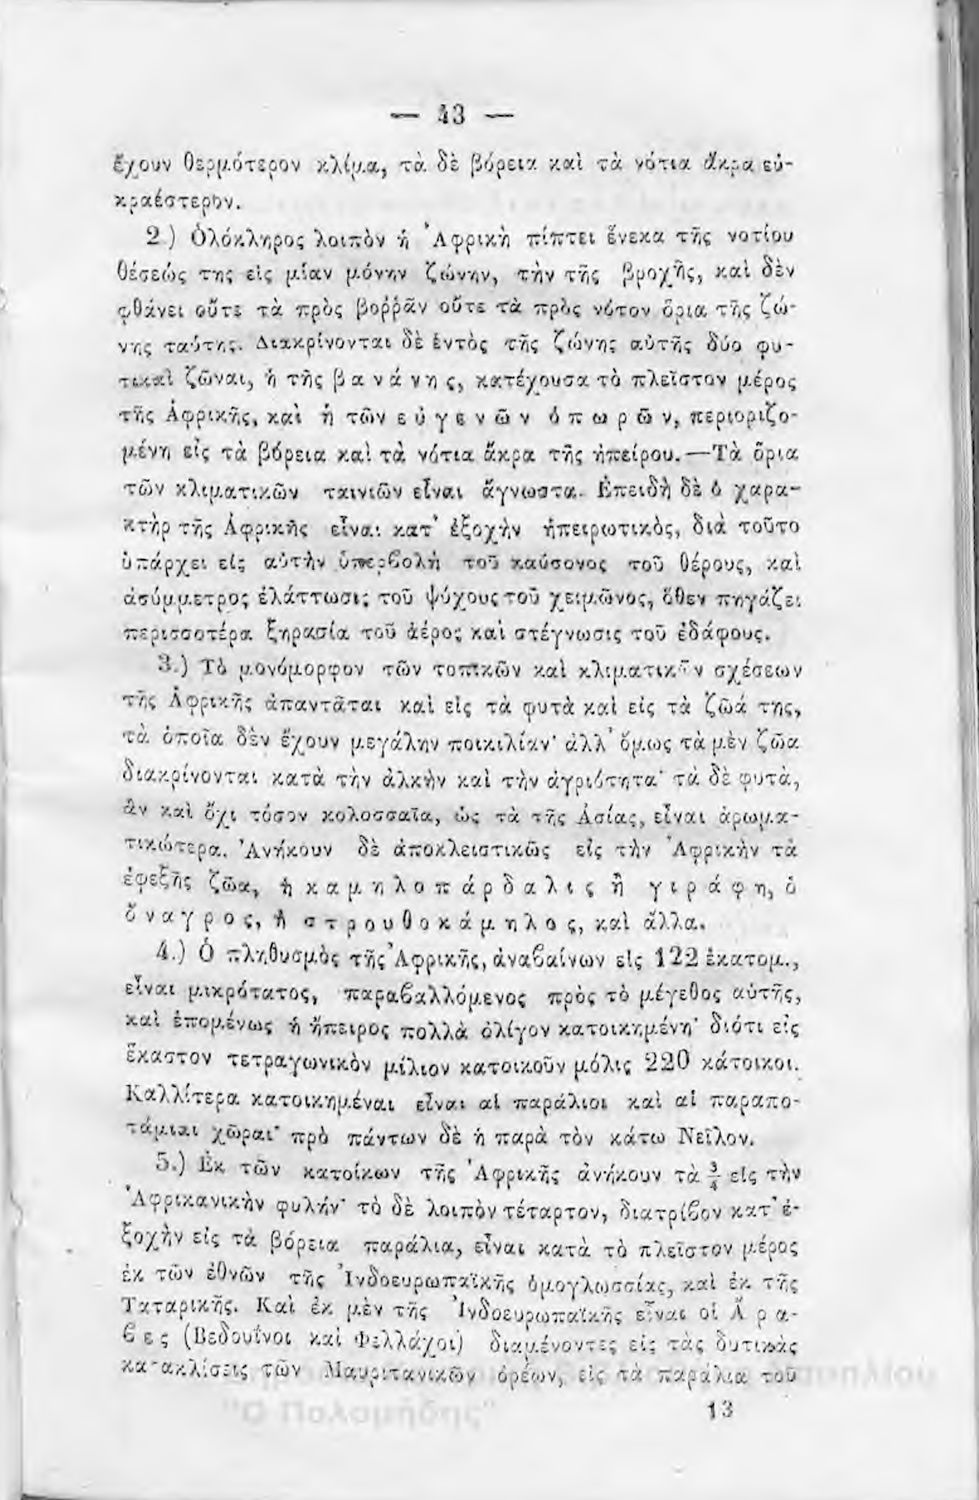 — 43 —
ἔχουν θερμότερον κλίμα, τὰ δὲ βόρεια καὶ τὰ νότια ἄκρα εὐ-
κραέστερον.
2.) Ὁλόκληρος λοιπὸν ἡ Ἀφρικὴ πίπτει ἕνεκα τῆς νοτίου
θέσεώς της εἰς μίαν μόνην ζώνην, τὴν τῆς βροχῆς, καὶ δὲν
φθάνει οὔτε τὰ πρὸς βοῤῥᾶν οὔτε τὰ πρὸς νότον ὅρια τῆς ζώ-
νης ταύτης. Διακρίνονται δὲ ἐντὸς τῆς ζώνης αὐτῆς δύο φυ-
τικαὶ ζῶναι, ἡ τῆς βανάνης, κατέχουσα τὸ πλεῖστον μέρος
τῆς Ἀφρικῆς, καὶ ἡ τῶν εὐγενῶν ὀπωρῶν, περιοριζο-
μένη εἰς τὰ βόρεια καὶ τὰ νότια ἄκρα τῆς ἠπείρου.—Τὰ ὅρια
τῶν κλιματικῶν ταινιῶν εἶναι ἄγνωστα. Ἐπειδὴ δὲ ὁ χαρα-
κτὴρ τῆς Ἀφρικῆς εἶναι κατ' ἐξοχὴν ἠπειρωτικὸς, διὰ τοῦτο
ὑπάρχει εἰς αὐτὴν ὑπερβολὴ τοῦ καύσονος τοῦ θέρους, καὶ
ἀσύμμετρος ἐλάττωσις τοῦ ψύχους τοῦ χειμῶνος, ὅθεν πηγάζει
περισσοτέρα ξηρασία τοῦ ἀέρος καὶ στέγνωσις τοῦ ἐδάφους.
3.) Τὸ μονόμορφον τῶν τοπικῶν καὶ κλιματικῶν σχέσεων
τῆς Ἀφρικῆς ἀπαντᾶται καὶ εἰς τὰ φυτὰ καὶ εἰς τὰ ζῶά της,
τὰ ὁποῖα δὲν ἔχουν μεγάλην ποικιλίαν· ἀλλ' ὅμως τὰ μὲν ζῶα
διακρίνονται κατὰ τὴν ἀλκὴν καὶ τὴν ἀγριότητα· τὰ δὲ φυτὰ,
ἂν καὶ ὄχι τόσον κολοσσαῖα, ὡς τὰ τῆς Ἀσίας, εἶναι ἀρωμα-
τικώτερα. Ἀνήκουν δὲ ἀποκλειστικῶς εἰς τὴν Ἀφρικὴν τὰ
ἐφεξῆς ζῶα, ἡ καμηλοπάρδαλις ἢ γιράφη, ὁ
ὄναγρος, ἡ στρουθοκάμηλος, καὶ ἄλλα.
4.) Ὁ πληθυσμὸς τῆς Ἀφρικῆς, ἀναβαίνων εἰς 122 ἑκατομ.,
εἶναι μικρότατος, παραβαλλόμενος πρὸς τὸ μέγεθος αὐτῆς,
καὶ ἑπομένως ἡ ἤπειρος πολλὰ ὀλίγον κατοικημένη· διότι εἰς
ἕκαστον τετραγωνικὸν μίλιον κατοικοῦν μόλις 220 κάτοικοι.
Καλλίτερα κατοικημέναι εἶναι αἱ παράλιοι καὶ αἱ παραπο-
τάμιαι χῶραι· πρὸ πάντων δὲ ἡ παρὰ τὸν κάτω Νεῖλον.
5.) Ἐκ τῶν κατοίκων τῆς Ἀφρικῆς ἀνήκουν τὰ ¾ εἰς τὴν
Ἀφρικανικὴν φυλήν· τὸ δὲ λοιπὸν τέταρτον, διατρίβον κατ' ἐ-
ξοχὴν εἰς τὰ βόρεια παράλια, εἶναι κατὰ τὸ πλεῖστον μέρος
ἐκ τῶν ἐθνῶν τῆς Ἰνδοευρωπαϊκῆς ὁμογλωσσίας, καὶ ἐκ τῆς
Ταταρικῆς. Καὶ ἐκ μὲν τῆς Ἰνδοευρωπαϊκῆς εἶναι οἱ Ἄρα-
βες (Βεδουῖνοι καὶ Φελλάχοι) διαμένοντες εἰς τὰς δυτικὰς
κατακλίσεις τῶν Μαυριτανικῶν ὀρέων, εἰς τὰ παράλια τοῦ
"Ο Παλαμήδης"
13